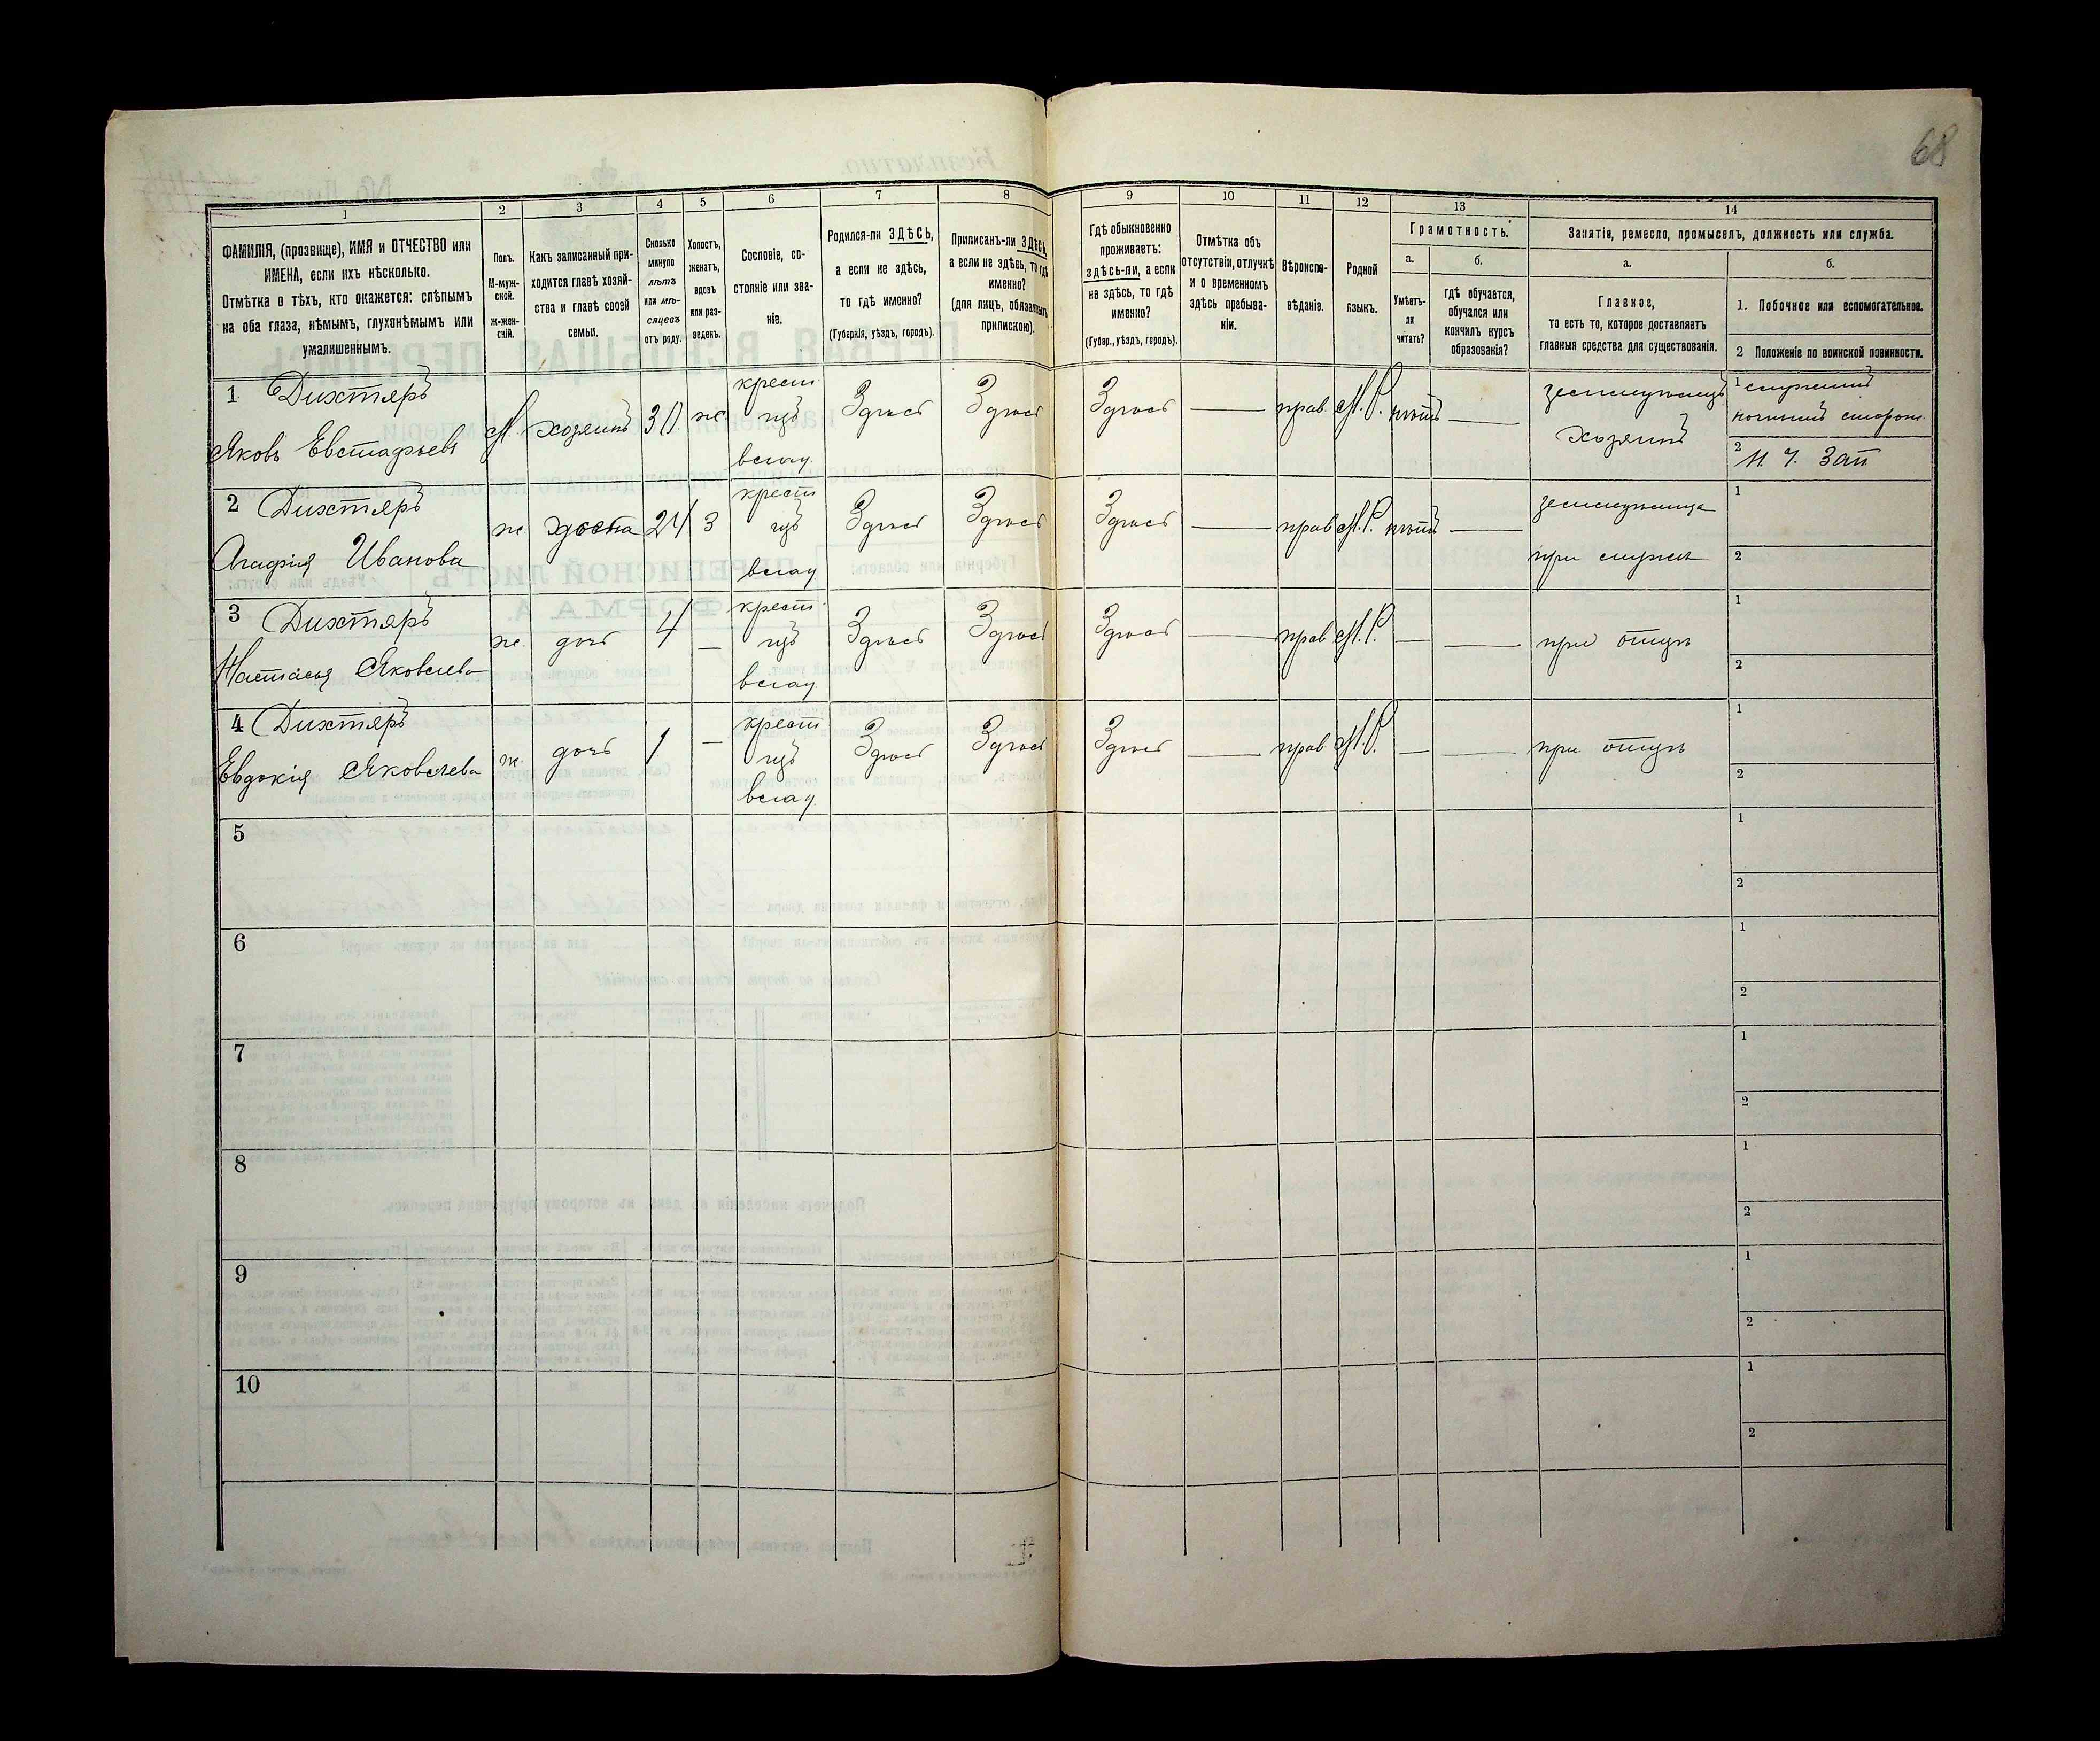 68
1
2
3
4
5
6
7
8
9
10
11
12
13
14
ФАМИЛІЯ, (прозвище), ИМЯ и ОТЧЕСТВО или
ИМЕНА, если ихъ нѣсколько.
Отмѣтка о тѣхъ, кто окажется: слѣпымъ
на оба глаза, нѣмымъ, глухонѣмымъ или
умалишеннымъ.
Полъ.
М-муж-
ской.
Ж-жен-
скій.
Какъ записанный при-
ходится главѣ хозяй-
ства и главѣ своей
семьи.
Сколько
минуло
лѣтъ
или мѣ-
сяцевъ
отъ роду.
Холостъ,
женатъ,
вдовъ
или раз-
веденъ.
Сословіе, со-
стояніе или зва-
ніе.
Родился-ли ЗДѢСЬ,
а если не здѣсь,
то гдѣ именно?
(Губернія, уѣздъ, городъ).
Приписанъ-ли ЗДѢСЬ,
а если не здѣсь, то гдѣ
именно?
(для лицъ, обязанныхъ
припискою).
Гдѣ обыкновенно
проживаетъ:
здѣсь-ли, а если
не здѣсь, то гдѣ
именно?
(Губер., уѣздъ, городъ).
Отмѣтка объ
отсутствіи, отлучкѣ
и о временномъ
здѣсь пребыва-
ніи.
Вѣроиспо-
вѣданіе.
Родной
языкъ.
Грамотность.
а.
Умѣетъ-
ли
читать?
б.
гдѣ обучается,
обучался или
кончилъ курсъ
образованія?
Занятіе, ремесло, промыселъ, должность или служба.
а.
Главное,
то есть то, которое доставляетъ
главныя средства для существованія.
б.
1. Побочное или вспомогательное.
2 Положеніе по воинской повинности.
1 Дихтяръ
Яковъ Евстафьевъ
М. хозяинъ 30 ж. крест
изъ
влад.
Здѣсь Здѣсь Здѣсь — прав. М.Р. нѣтъ —
хозяинъ
1
ночнымъ сторож.
2 Н. Ч. Зап.
2 Дихтяръ
Агафія Иванова
ж. 24 3 крест
изъ
влад.
Здѣсь Здѣсь Здѣсь — прав М.Р. нѣтъ —
при мужѣ
1
2
3 Дихтяръ
Настасья Яковлева
ж. дочь 4 — крест
изъ
влад.
Здѣсь Здѣсь Здѣсь — прав М.Р. — — при отцѣ
1
2
4 Дихтяръ
Евдокія Яковлева
ж. дочь 1 — крест
изъ
влад.
Здѣсь Здѣсь Здѣсь — прав. М.Р. — — при отцѣ
1
2
5
1
2
6
1
2
7
1
2
8
1
2
9
1
2
10
1
2